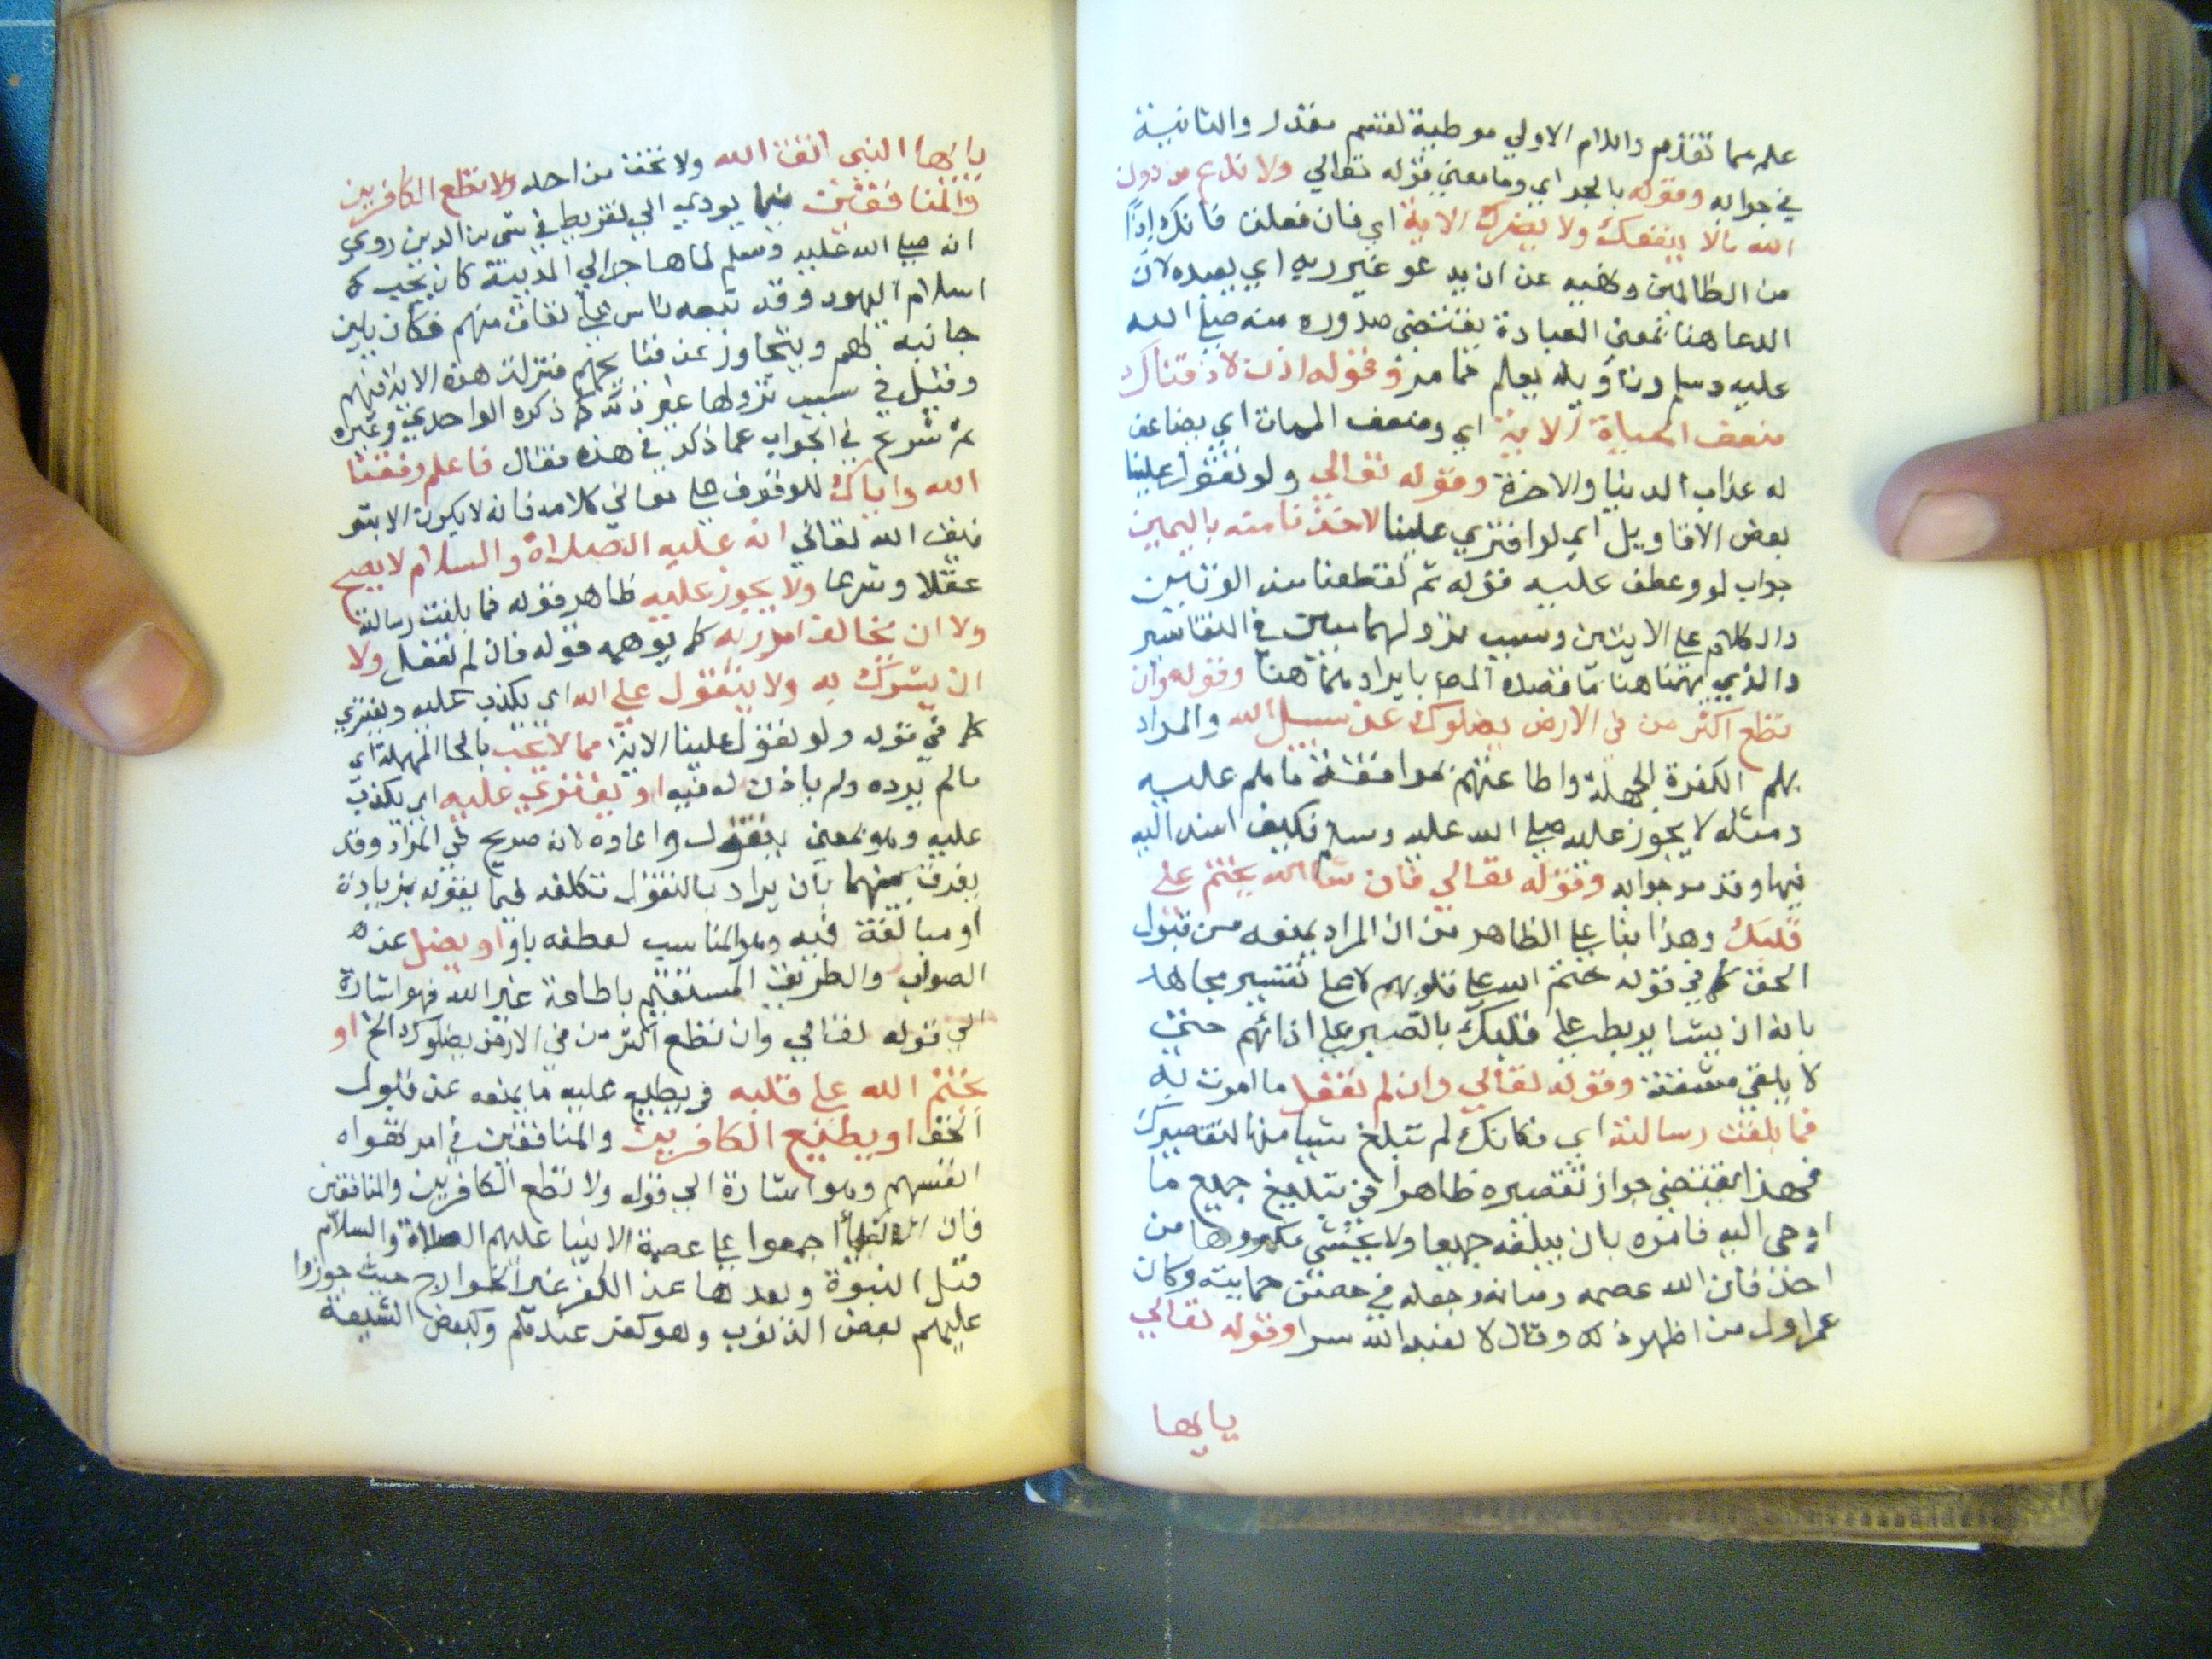 علم مما تقدم واللام الاولي موطية لقسم مقدر والثانية
في جوابه وقوله بالجر اي وما معني قوله تعالي ولا تدع من دون
الله مالا ينفعك ولا يضرك الاية اي فان فعلت فانك اذًا
من الظالمين ونهيه عن ان يدعو غير ربه اي يعبده لان
الدعا هنا بمعني العبادة يقتضي صدوره منه صلي الله
عليه وسلم وتأويله يعلم مما مر وقوله اذن لاذقناك
ضعف الحياة الاية اي وضعف الممات اي يضاعف
له عذاب الدنيا والاخرة وقوله تعالي ولو تقول علينا
بعض الاقاويل اي لو افتري علينا لاخذنا منه باليمين
جواب لو وعطف عليه قوله ثم لقطعنا منه الوتين
والكلام علي الايتين وسبب نزولهما مبين في التفاسير
والذي يهمنا هنا ما قصده المص بايراد هما هنا وقوله وان
تطع اكثر من في الارض يضلوك عن سبيل الله والمراد
بهم الكفرة الجهلة واطاعتهم بموافقة ما هم عليه
ومثله لا يجوز عليه صلي الله عليه وسلم فكيف اسند اليه
فيها وقد مر جوابه وقوله تعالي فان يشا الله يختم علي
قلبك وهذا بنا علي الظاهر من ان المراد يمنعه من قبول
الحق كما في قوله ختم الله علي قلوبهم لا علي تفسير مجاهد
بانه ان يشا يربط علي قلبك بالصبر علي اذائهم حتي
لا يلقي مشقة وقوله تعالي وان لم تفعل ما امرت به
فما بلغت رسالته اي فكانك لم تبلغ شيا منها لتقصيرك
فهذا يقتضي جواز تقصيره ظاهرا في تبليغ جميع ما
اوحي اليه فامره بان يبلغه جهيعا ولا يخشي مكروها من
احد فان الله عصمه وصانه وجعله في حصن حمايته وكان
عمر اول من اظهر ذلك وقال لا نعبد الله سرا وقوله تعالي
يايها
يا ايها النبي اتق الله ولا تخف من احد ولا تطع الكافرين
والمنافقين فيما يودي الي تفريط في شي من الدين روي
انه صلي الله عليه وسلم لما هاجر الي المدينة كان يحب
اسلام اليهود وقد تبعه ناس علي نفاق منهم فكان يلين
جانبه لهم ويتجاوز عن قبائحهم فنزلت هذه الاية فيهم
وقيل في سبب نزولها غير ذلك كما ذكره الواحدي وغيره
ثم شرع في الجواب عما ذكر في هذه فقال فاعلم وفقنا
الله واياك للوقوف علي معاني كلامه فانه لا يكون الا بتو
فيق الله تعالي انه عليه الصلاة والسلام لا يصح
عقلا وشرعا ولا يجوز عليه ظاهر قوله فما بلغت رسالته
ولا ان يخالف امر ربه كما يوهمه قوله فان لم تفعل ولا
ان يشرك به ولا يتقول علي الله اي يكذب عليه ويفتري
كما في قوله ولو تقول علينا الاية مما لا يحب بالحا المهملة اي
مالم يرده ولم ياذن له فيه او يفتري عليه اي يكذب
عليه وهو بمعني يتقول واعاده لانه صريح في المراد وقد
يفرق بينهما بان يراد بالتقول تكلفه فيما يقوله بزيادة
او مبالغة فيه وهو المناسب لعطفه باو او يضل عن
الصواب والطريق المستقيم باطاعة غير الله فهو اشارة
الي قوله تعالي وان تطع اكثر من في الارض يضلوك الخ او
يختم الله علي قلبه فيطبع عليه ما يمنعه عن قبول
الحق او يطيع الكافرين والمنافقين في امر تهواه
انفسهم وهو اشارة الي قوله ولا تطع الكافرين والمنافقين
فان اجمعوا علي عصمة الانبيا عليهم الصلاة والسلام
قبل النبوة وبعدها عن الكفر غير الخوارج حيث جوزوا
عليهم بعض الذنوب وهو كفر عندهم وبعض الشيعة